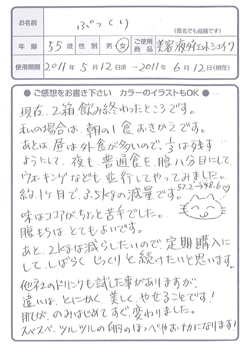 お名前 ぷっくり
(匿名でも結構です)
年齢 55歳 性別 男・女 ご使用商品 美容液ダイエットシェイク
使用期間 2011年5月12日～2011年6月12日(現在)
◎ご感想をお書き下さい カラーのイラストもOK◎
現在、2箱飲み終わったところです。
私の場合は、朝の1食おきかえです。
あとは、昼は外食が多いので、1/3は残す
ようにして、夜も普通食を腹八分目にして
ウォーキングなども並行してやってみました。
約1ヶ月で、3.5kgの減量です。
52.2→48.6
味はココアがちょと苦手でした。
腹もちはとてもよいです。
あと、2kgは減らしたいので、定期購入に
して、しばらくじっくりと続けたいと思います。
他社のドリンクも試した事がありますが、
違いは、とにかく、美しくやせることです!
肌が、のみはじめてすぐ変わりました。
スベスベ、ツルツルの卵のほっぺやおなかになります!